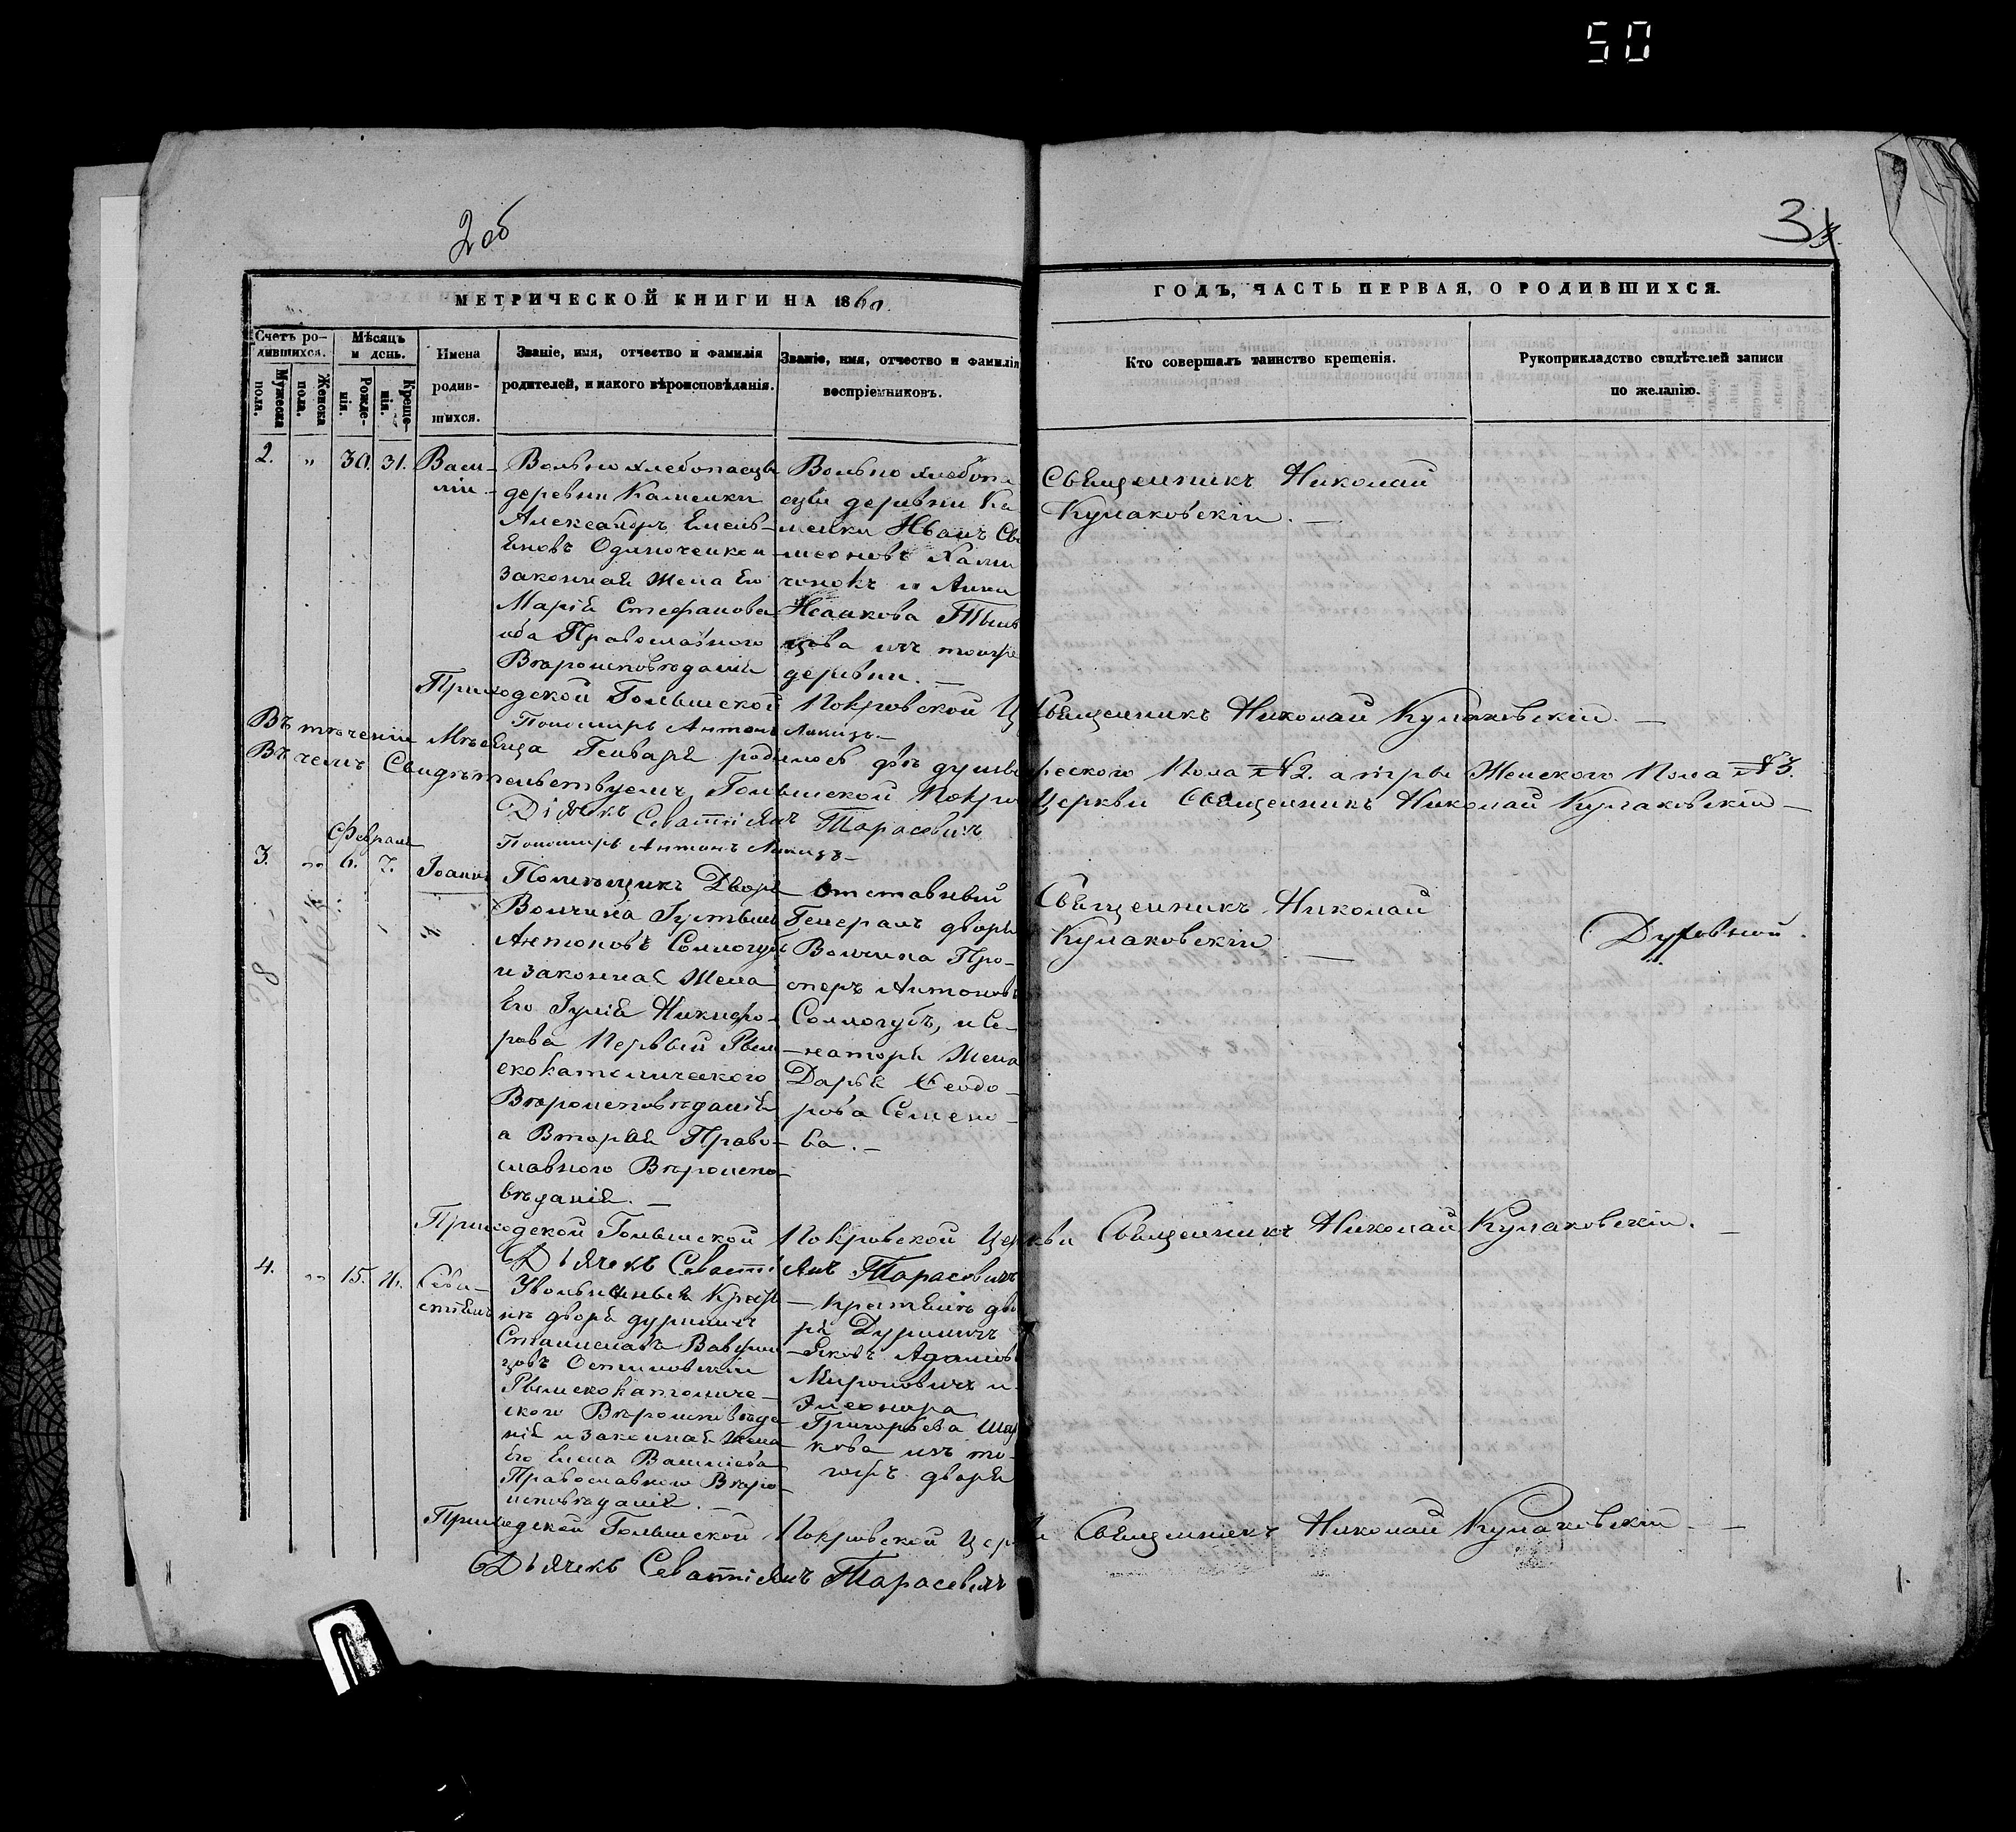 50
2 об
3
МЕТРИЧЕСКОЙ КНИГИ НА 1860.
ГОДЪ, ЧАСТЬ ПЕРВАЯ, О РОДИВШИХСЯ.
Счетъ ро-
дившихся.
Мужеска
пола.
Женска
пола.
Мѣсяцъ
и день.
Рожде-
нія.
Креще-
нія.
Имена
родив-
шихся.
Званіе, имя, отчество и фамилія
родителей, и какого вѣроисповѣданія.
Званіе, имя, отчество и фамилія
воспріемниковъ.
Кто совершалъ таинство крещенія.
Рукоприкладство свидѣтелей записи
по желанію.
2. " 30. 31.
Васи-
лій
Вольно хлебопасцы
деревни Каменки
Александръ Емель-
яновъ
законная жена его
Марія Стефанова
оба Православного
Вѣроисповѣданія
Вольно хлебопа
сцы деревни Ка
менки Иванъ Си
меоновъ
и Анна
Исакова
цова изъ тойже
деревни. —
Священникъ Николай
Кулаковскій. —
Приходской Голышской Покровской Ц Священникъ Николай Кулаковскій. —
Пономарь Антонъ
Въ теченіи Мѣсяца Генваря родилось двѣ души Мужеского Пола № 2. а три Женского Пола № 3.
Въ чемъ Свидѣтельствуемъ, Голышской Покро Церкви Священникъ Николай Кулаковскій —
Діячекъ Севастіянъ Тарасевичъ
Пономарь Антонъ
Февраля
3. " 6. 7.
Іоаннъ
Помѣщикъ Двора
Волчина Густавъ
Антоновъ Соллогубъ
и законная Жена
Его Іулія Никифо-
рова Первый Рим
скокатолического
Вѣроисповѣданія
а Вторая Право-
славного Вѣроиспо-
вѣданія. —
Отставный
Генералъ двора
Волчина Про-
сперъ Антоновъ
Соллогубъ, и Се-
наторя Жена
Дарья Феодо-
рова Семено-
ва. —
Священникъ Николай
Кулаковскій —
Духовной.
Приходской Голышской Покровской Церкви Священникъ Николай Кулаковскій. —
Дьячекъ Севастіянъ Тарасевичъ
4. " 15. 16.
Сева-
стіянъ
двора
Станиславъ
цовъ
Римскокатоличе-
ского Вѣроисповѣда
нія и законная Жена
Его Елена Васильева
Православного Вѣро-
исповѣданія. —
дво
ра
Яковъ Адамовъ
Мироновичъ и
Элеонора
Григорьева
кова изъ то-
гожъ двора
Приходской Голышской Покровской Церкви Священникъ Николай Кулаковскій —
Дьячекъ Севастіянъ Тарасевичъ